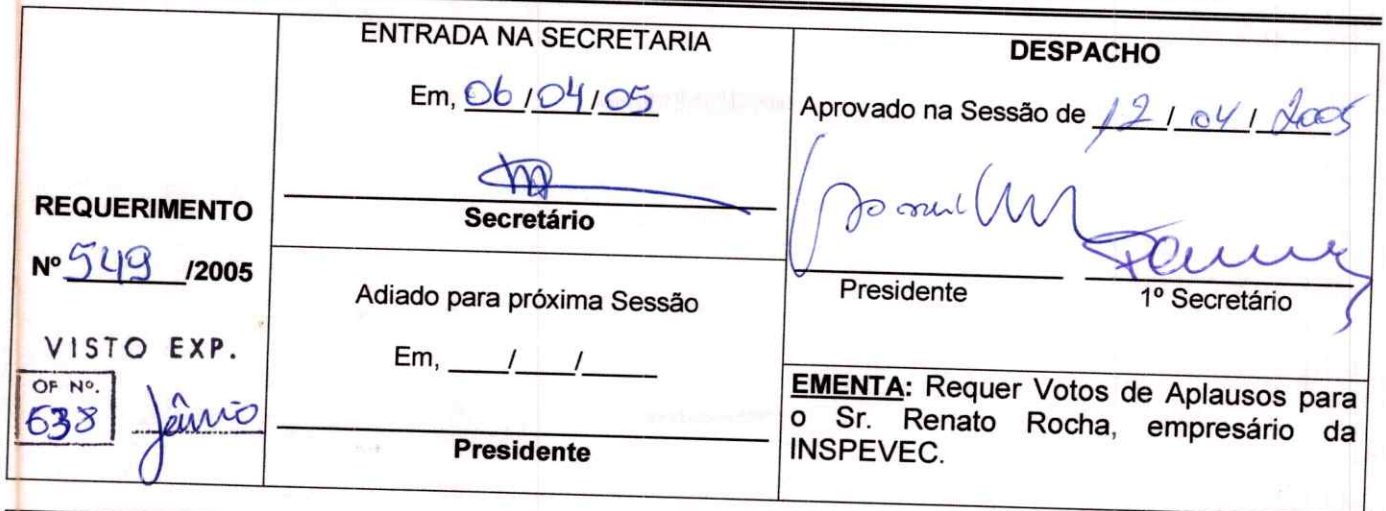 REQUERIMENTO
Nº 549 /2005
VISTO EXP.
OF Nº.
638
Jânio
ENTRADA NA SECRETARIA
Em, 06/04/05
Secretário
Adiado para próxima Sessão
Em, ____/____/____
Presidente
DESPACHO
Aprovado na Sessão de 12/04/2005
Presidente
1º Secretário
EMENTA: Requer Votos de Aplausos para
o Sr. Renato Rocha, empresário da
INSPEVEC.